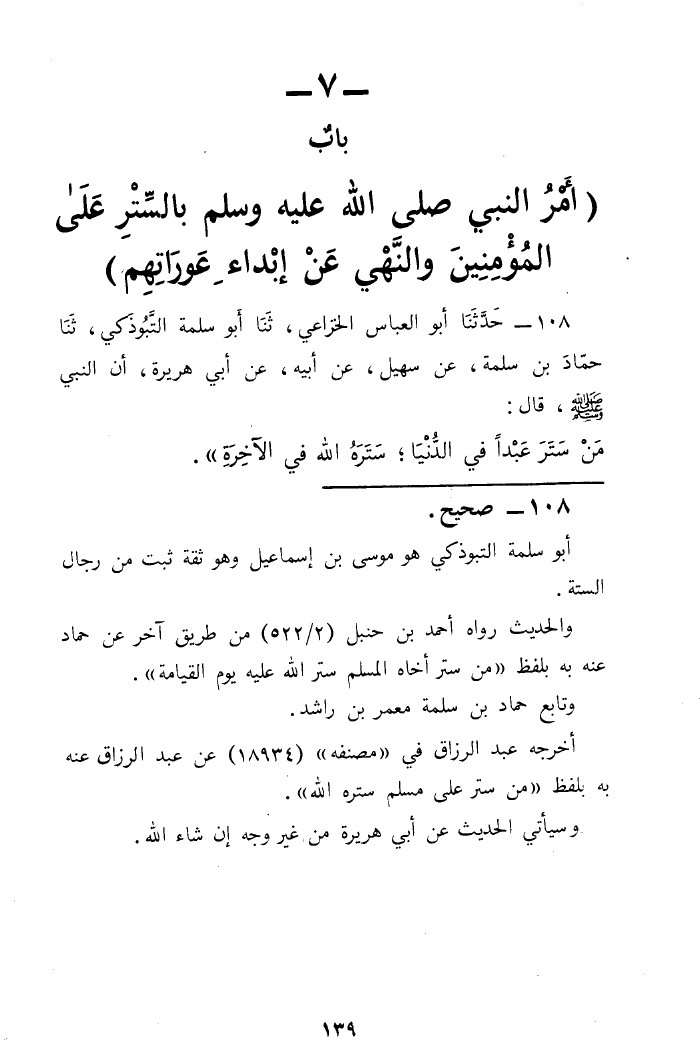 — ٧ —
بابٌ
( أَمْرُ النبي صلى الله عليه وسلم بالسِّتْرِ عَلَىٰ
المُؤْمِنِينَ والنَّهْي عَنْ إبْداء عَورَاتِهِم )
١٠٨ — حَدَّثَنَا أبو العباس الخزاعي ، ثَنَا أبو سلمة التَّبُوذكي ، ثَنَا
حمّادَ بن سلمة ، عن سهيل ، عن أبيه ، عن أبي هريرة ، أن النبي
ﷺ ، قال :
مَنْ سَتَرَ عَبْداً في الدُّنْيَا ؛ سَتَرَهُ الله في الآخِرَةِ » .
١٠٨ — صحيح .
أبو سلمة التبوذكي هو موسى بن إسماعيل وهو ثقة ثبت من رجال
الستة .
والحديث رواه أحمد بن حنبل (٥٢٢/٢) من طريق آخر عن حماد
عنه به بلفظ «من ستر أخاه المسلم ستر الله عليه يوم القيامة» .
وتابع حماد بن سلمة معمر بن راشد .
أخرجه عبد الرزاق في «مصنفه» (١٨٩٣٤) عن عبد الرزاق عنه
به بلفظ «من ستر على مسلم ستره الله» .
وسيأتي الحديث عن أبي هريرة من غير وجه إن شاء الله .
١٣٩